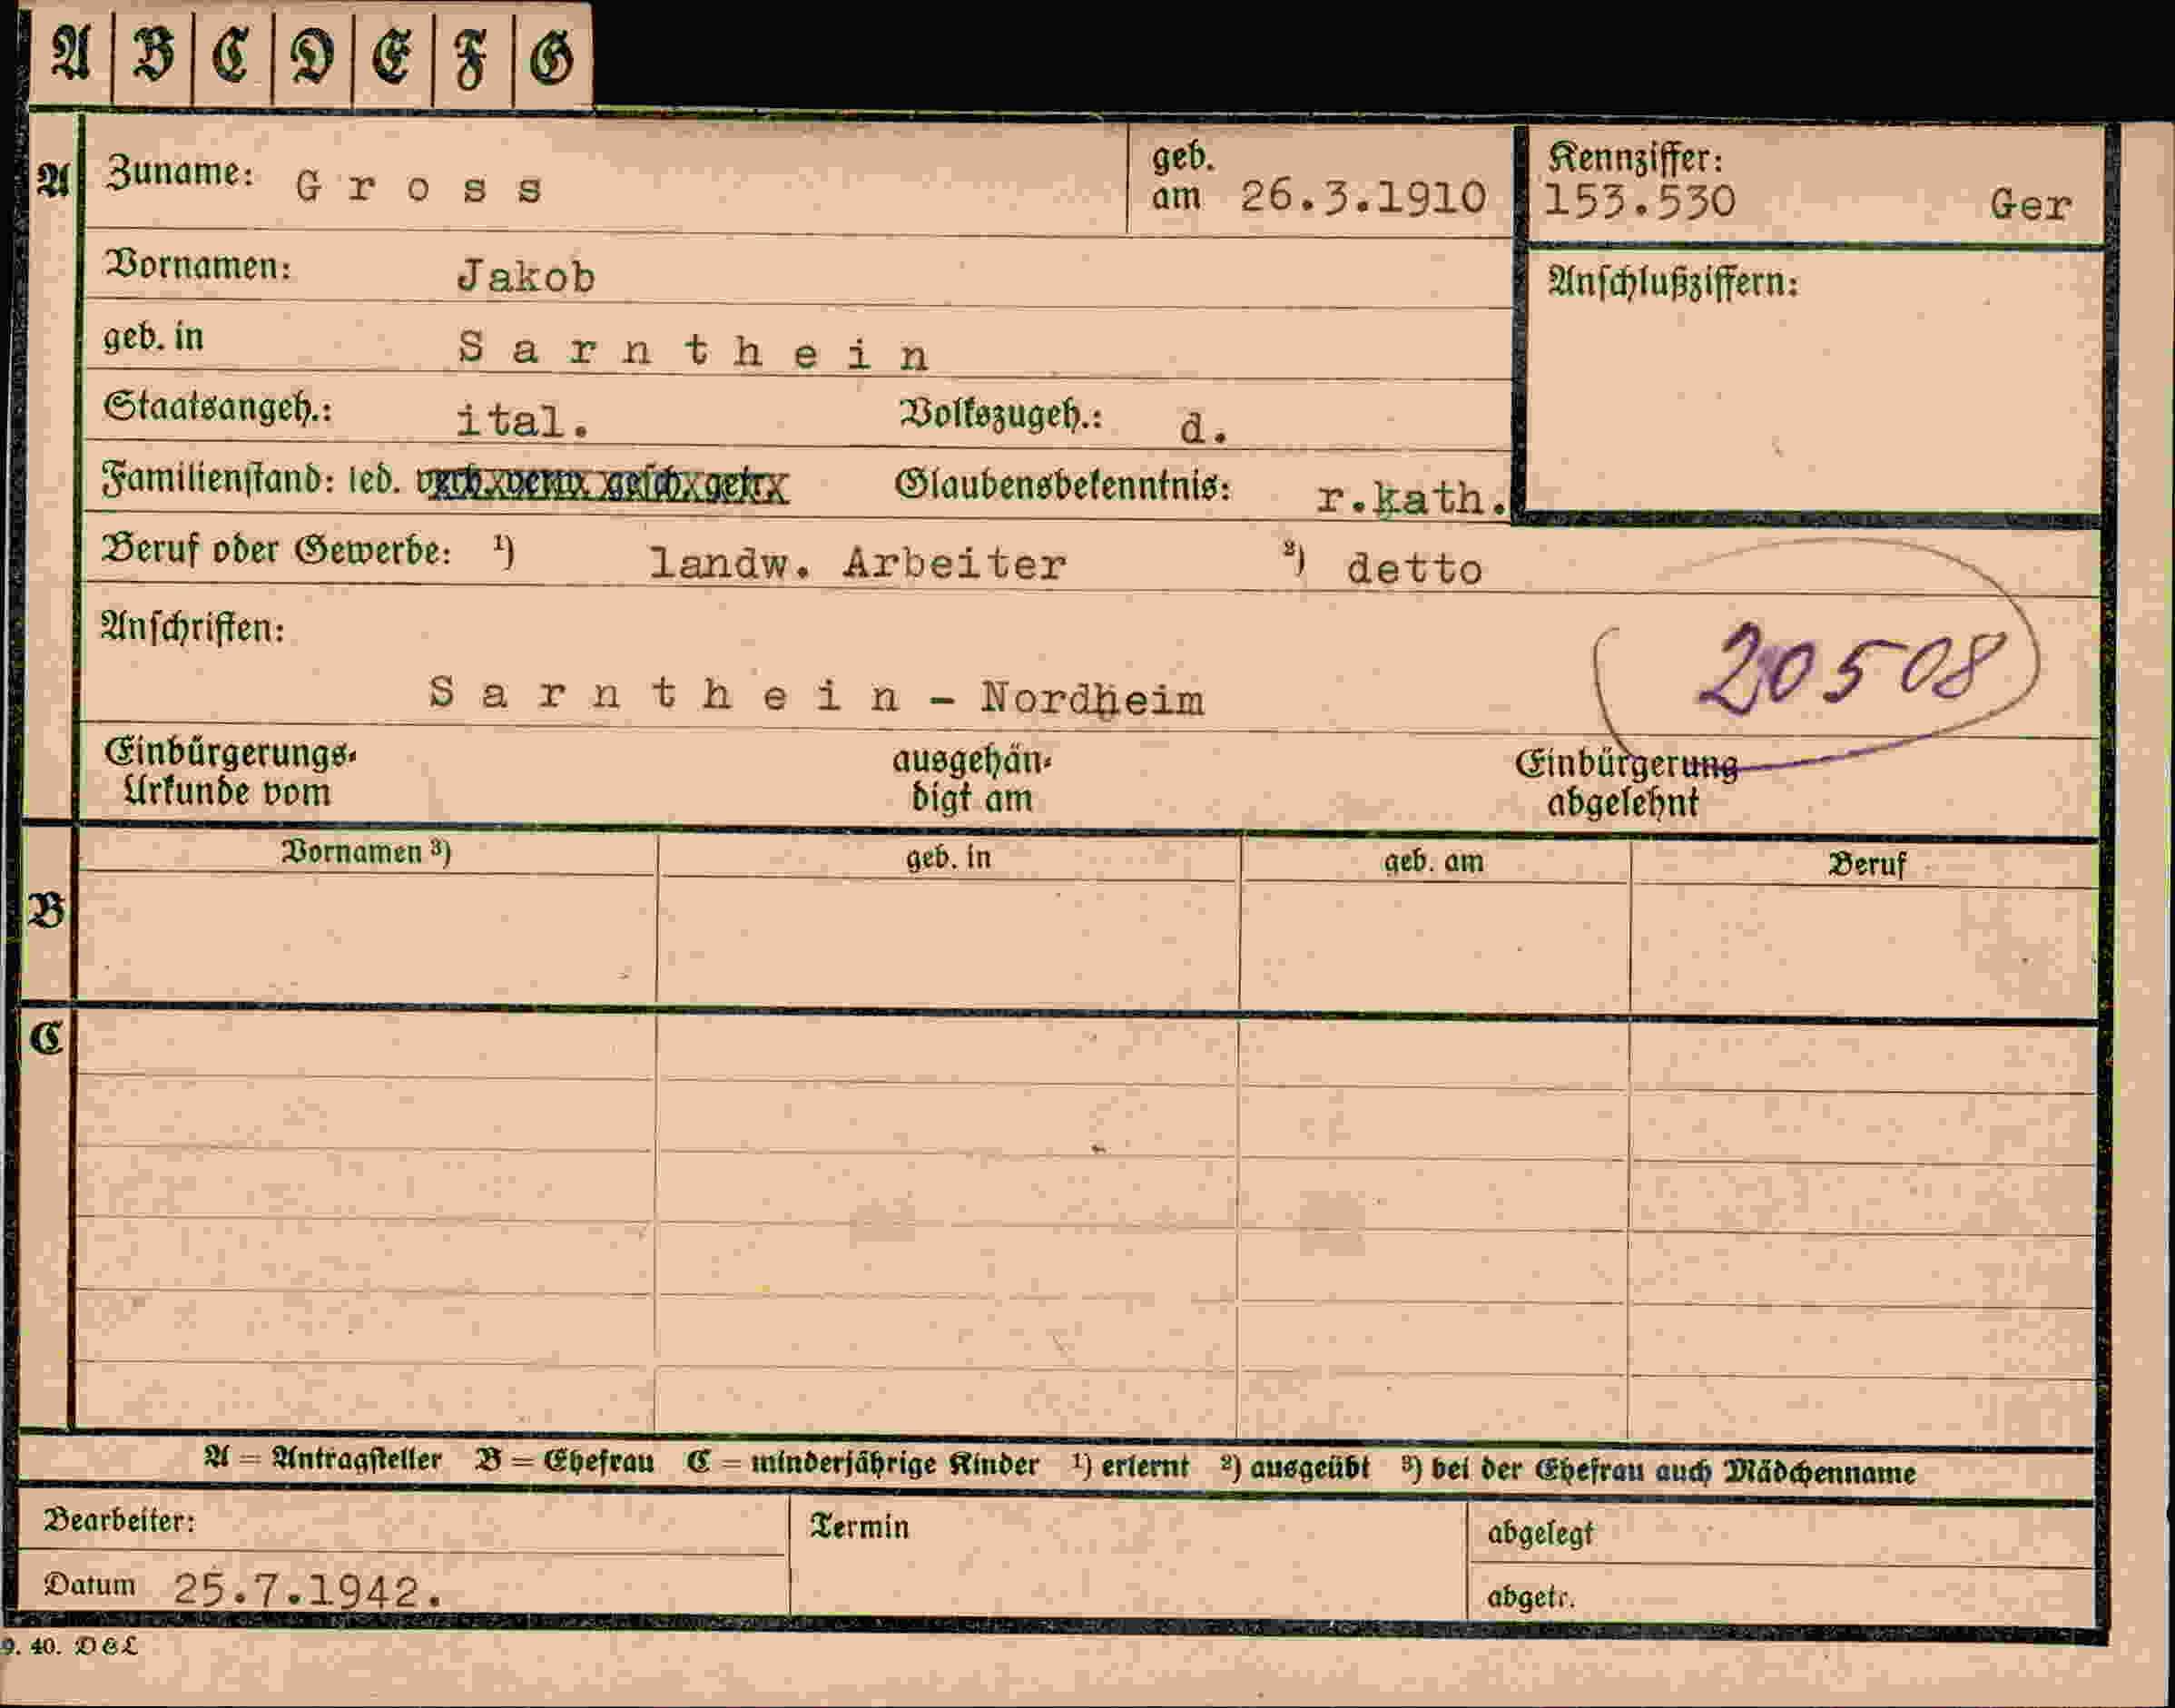 A B C D E F G
A Zuname: G r o s s geb. am 26.3.1910 Kennziffer: 153.530 Ger
Vornamen: Jakob Anschlußziffern:
geb. in S a r n t h e i n
Staatsangeh.: ital. Volkszugeh.: d.
Familienstand: led. verh. verw. gesch. getr. Glaubensbekenntnis: r.kath.
Beruf oder Gewerbe: ¹) landw. Arbeiter ²) detto
Anschriften:
20508
S a r n t h e i n - Nordheim
Einbürgerungs- ausgehän- Einbürgerung
Urkunde vom digt am abgelehnt
B Vornamen ³) geb. in geb. am Beruf
C
A = Antragsteller B = Ehefrau C = minderjährige Kinder ¹) erlernt ²) ausgeübt ³) bei der Ehefrau auch Mädchenname
Bearbeiter: Termin abgelegt
Datum 25.7.1942. abgetr.
9. 40. D&L